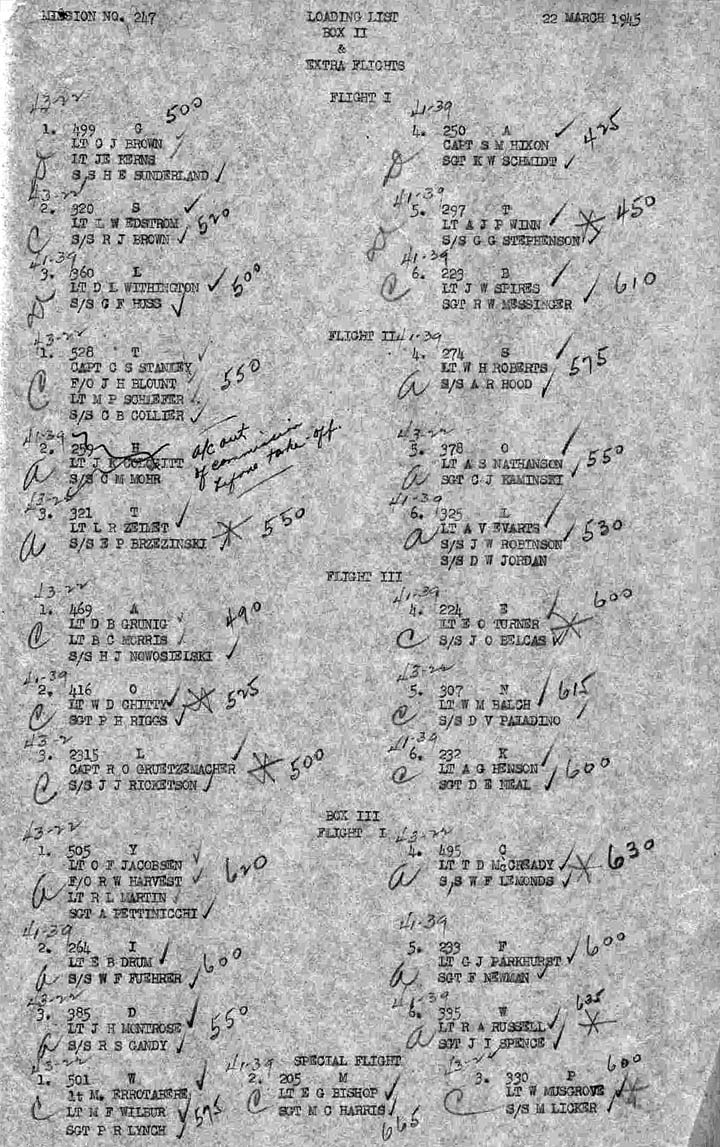 MISSION NO. 247 LOADING LIST 22 MARCH 1945
BOX II
&
EXTRA FLIGHTS
FLIGHT I
43-22 500
1. 499 G
LT C J BROWN
LT JE KERNS
S/S H E SUNDERLAND
D
43-22
2. 320 S
LT L W EDSTROM
S/S R J BROWN
C 520
41-39
3. 360 L
LT D L WITHINGTON
S/S G F HUSS
D 500
41-39
4. 250 A
CAPT S M HIXON
SGT K W SCHMIDT
D 425
41-39
5. 297 T
LT A J P WINN
S/S G G STEPHENSON
D 450
41-39
6. 223 B
LT J W SPIRES
SGT R W MESSINGER
C 610
FLIGHT II
43-22
1. 528 T
CAPT C S STANLEY
F/O J H BLOUNT
LT M P SCHAEFER
S/S C B COLLIER
C 550
41-39
2. 259 H
S/S C M MOHR
a
a/c out
of commission
before take-off.
43-22
3. 321 T
LT L R ZEIMET
S/S E P BRZEZINSKI
a 550
41-39
4. 274 S
LT W H ROBERTS
S/S A R HOOD
a 575
43-22
5. 378 O
LT A S NATHANSON
SGT C J KAMINSKI
a 550
41-39
6. 325 L
LT A V EVARTS
S/S J W ROBINSON
S/S D W JORDAN
a 530
FLIGHT III
43-22
1. 469 A
LT D B GRUNIG
LT B C MORRIS
S/S H J NOWOSIELSKI
C 490
41-39
2. 416 O
LT W D CHITTY
SGT P H RIGGS
C 525
43-2
3. 2315 L
CAPT R O GRUETZEMACHER
S/S J J RICKETSON
C 500
41-39
4. 224 E
LT E O TURNER
S/S J O BELCAS
C 600
43-22
5. 307 N
LT W M BALCH
S/S D V PALADINO
C 615
41-39
6. 232 K
LT A G HENSON
SGT D E NEAL
C 600
BOX III
FLIGHT I
43-22
1. 505 Y
LT O F JACOBSEN
F/O R W HARVEST
LT R L MARTIN
SGT A PETTINICCHI
a 620
41-39
2. 264 I
LT E B DRUM
S/S W F FUEHRER
a 600
43-22
3. 385 D
LT J H MONTROSE
S/S R S GANDY
a 550
43-22
4. 495 C
LT T D McCREADY
S/S W F LEMONDS
a 630
41-39
5. 233 F
LT G J PARKHURST
SGT F NEWMAN
a 600
41-39
6. 395 W
LT R A RUSSELL
SGT J I SPENCE
a 635
SPECIAL FLIGHT
43-22
1. 501 W
lt M. ERROTABERE
LT M F WILBUR
SGT P R LYNCH
C 575
41-39
2. 205 M
LT E G BISHOP
SGT M C HARRIS
C 665
43-22
3. 330 P
LT W MUSGROVE
S/S M LICKER
C 600